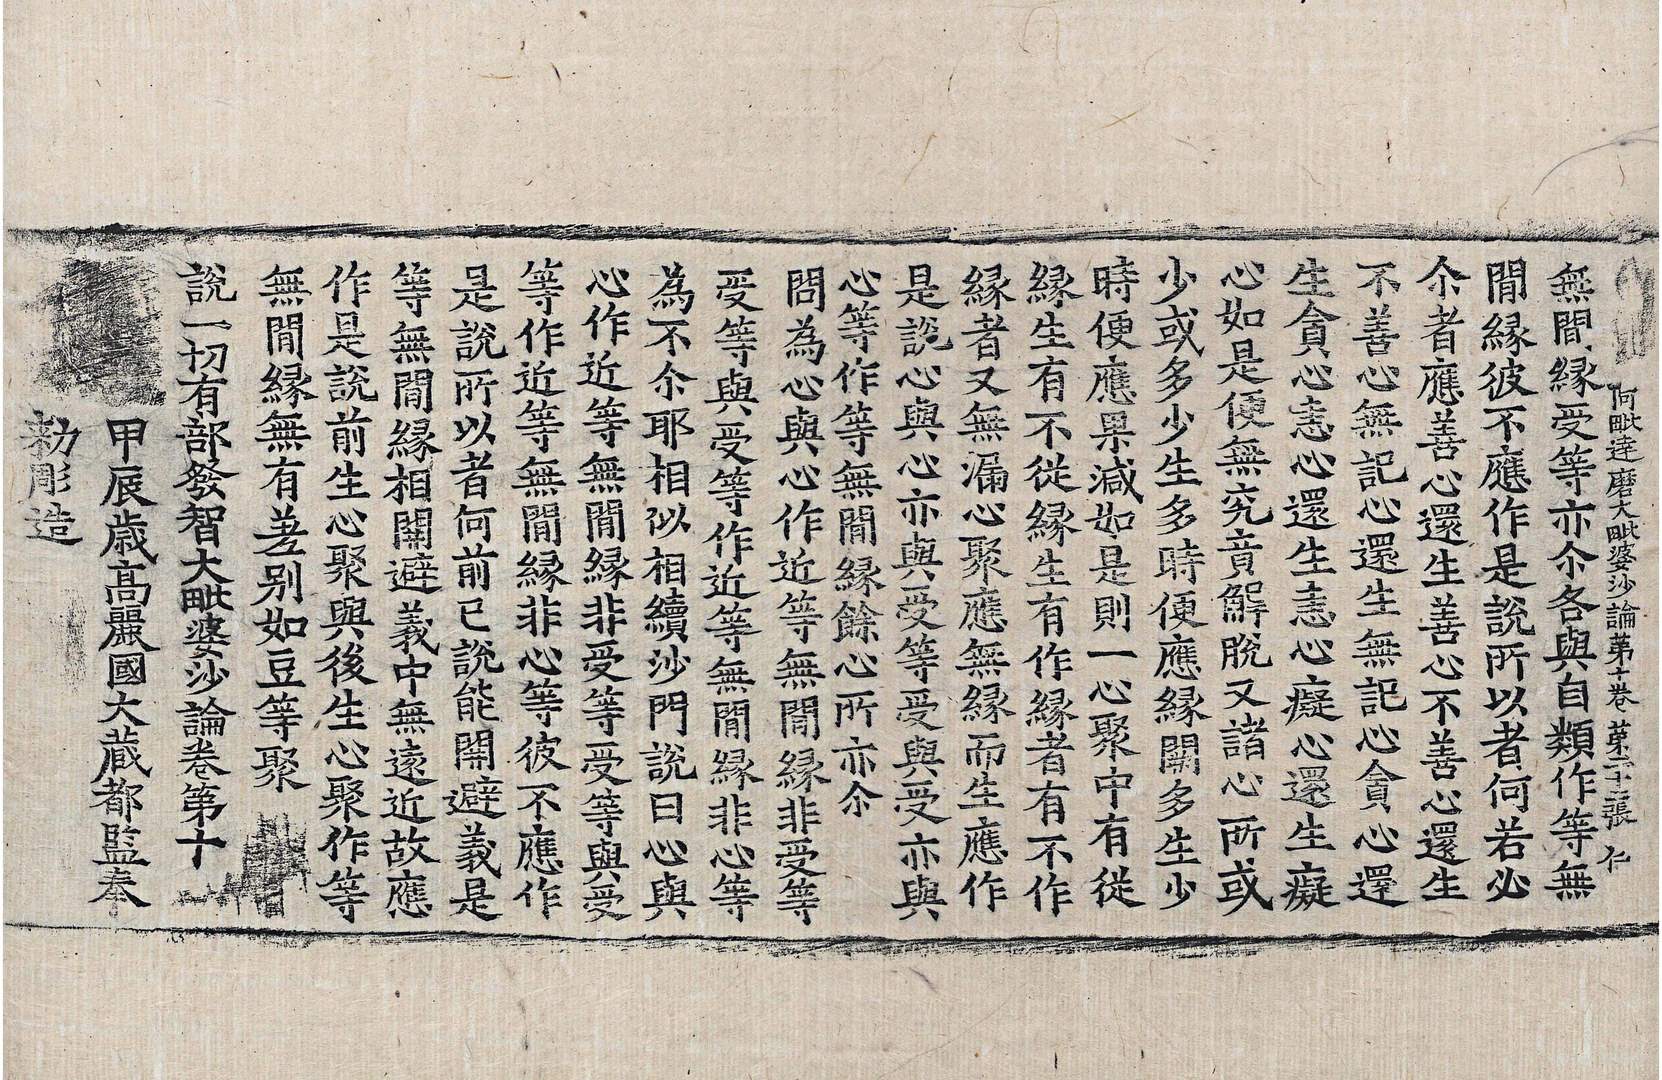 阿毗達磨大毗婆沙論第十卷 第二十二張 仁
無間緣受等亦尒各與自類作等無
間緣彼不應作是說所以者何若必
尒者應善心還生善心不善心還生
不善心無記心還生無記心貪心還
生貪心恚心還生恚心癡心還生癡
心如是便無究竟解脫又諸心所或
少或多少生多時便應緣闕多生少
時便應果減如是則一心聚中有從
緣生有不從緣生有作緣者有不作
緣者又無漏心聚應無緣而生應作
是說心與心亦與受等受與受亦與
心等作等無間緣餘心所亦尒
問為心與心作近等無間緣非受等
受等與受等作近等無間緣非心等
為不尒耶相似相續沙門說曰心與
心作近等無間緣非受等受等與受
等作近等無間緣非心等彼不應作
是說所以者何前已說能開避義是
等無間緣相開避義中無遠近故應
作是說前生心聚與後生心聚作等
無間緣無有差別如豆等聚
說一切有部發智大毗婆沙論卷第十
甲辰歲高麗國大藏都監奉
勅彫造